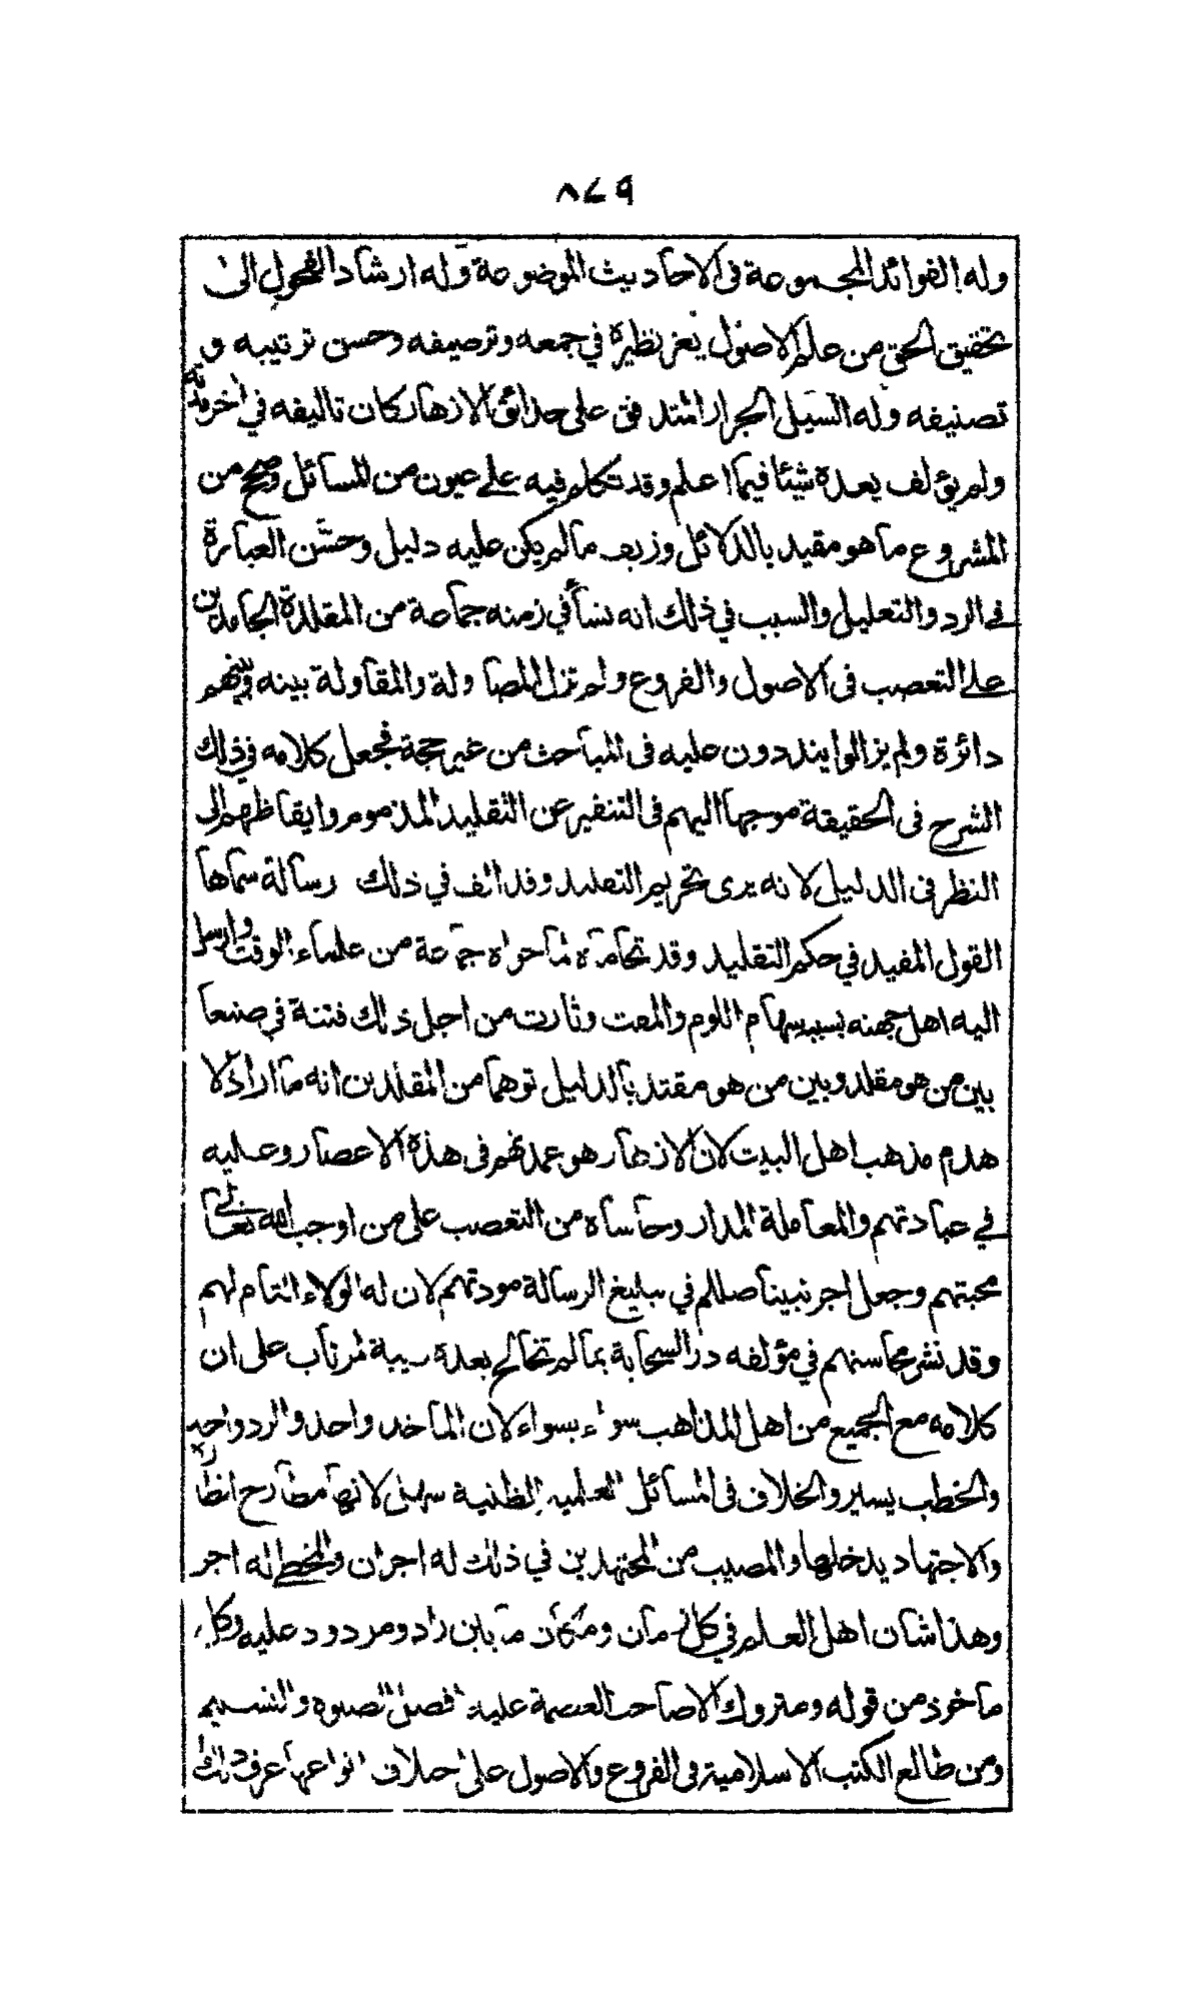 ٨٤٩
وله الفوائد المجموعة فى الاحاديث الموضوعة وله ارشاد الفحول الى
تحقيق الحق من علم الاصول يعز نظيره في جمعه وترصيفه وحسن ترتيبه و
تصنيفه وله السيل الجرار المتدفق على حدائق الازهار كان تاليفه في اخر مدته
ولم يؤلف بعده شيئا فيما اعلم وقد تكلم فيه على عيون من المسائل وصحح من
المشروع ما هو مقيد بالدلائل وزيف ما لم يكن عليه دليل وحسّن العبارة
فى الرد والتعليل والسبب في ذلك انه نشأ في زمنه جماعة من المقلدة الجامدين
على التعصب فى الاصول والفروع ولم تزل المصاولة والمقاولة بينه وبينهم
دائرة ولم يزالوا ينددون عليه فى المباحث من غير حجة فجعل كلامه في ذلك
الشرح فى الحقيقة موجها اليهم فى التنفير عن التقليد المذموم وايقاظهم الى
النظر فى الدليل لانه يرى تحريم التقليد وقد الف في ذلك رسالة سماها
القول المفيد في حكم التقليد وقد تحامه ما حواه جماعة من علماء الوقت وارسل
اليه اهل جهته بسببه سهام اللوم والمقت وثارت من اجل ذلك فتنة في صنعا
بين من هو مقلد وبين من هو مقتد بالدليل توهما من المقلدين انه ما اراد الا
هدم مذهب اهل البيت لان الازهار هو عمدتهم فى هذه الاعصار وعليه
في عبادتهم والمعاملة المدار وحاشاه من التعصب على من اوجب الله تعالى
محبتهم وجعل اجر نبينا صللم في تبليغ الرسالة مودتهم لان له الولاء التام لهم
وقد نشر محاسنهم في مؤلفه در السحابة بما لم تخالج بعده ريبة لمرتاب على ان
كلامه مع الجميع من اهل المذاهب سواء بسواء لان المأخذ واحد والرد واحد
والخطب يسير والخلاف فى المسائل العلمية الظنية سهل لانها مطارح انظار
والاجتهاد يدخلها والمصيب من المجتهدين في ذلك له اجران والمخطي له اجر
وهذا شان اهل العلم في كل زمان ومكان ما بين راد ومردود عليه وكل
ماخوذ من قوله ومتروك الا صاحب العصمة عليه افضل الصلوة والتسليم
ومن طالع الكتب الاسلامية فى الفروع والاصول على اختلاف انواعها عرف ذلك